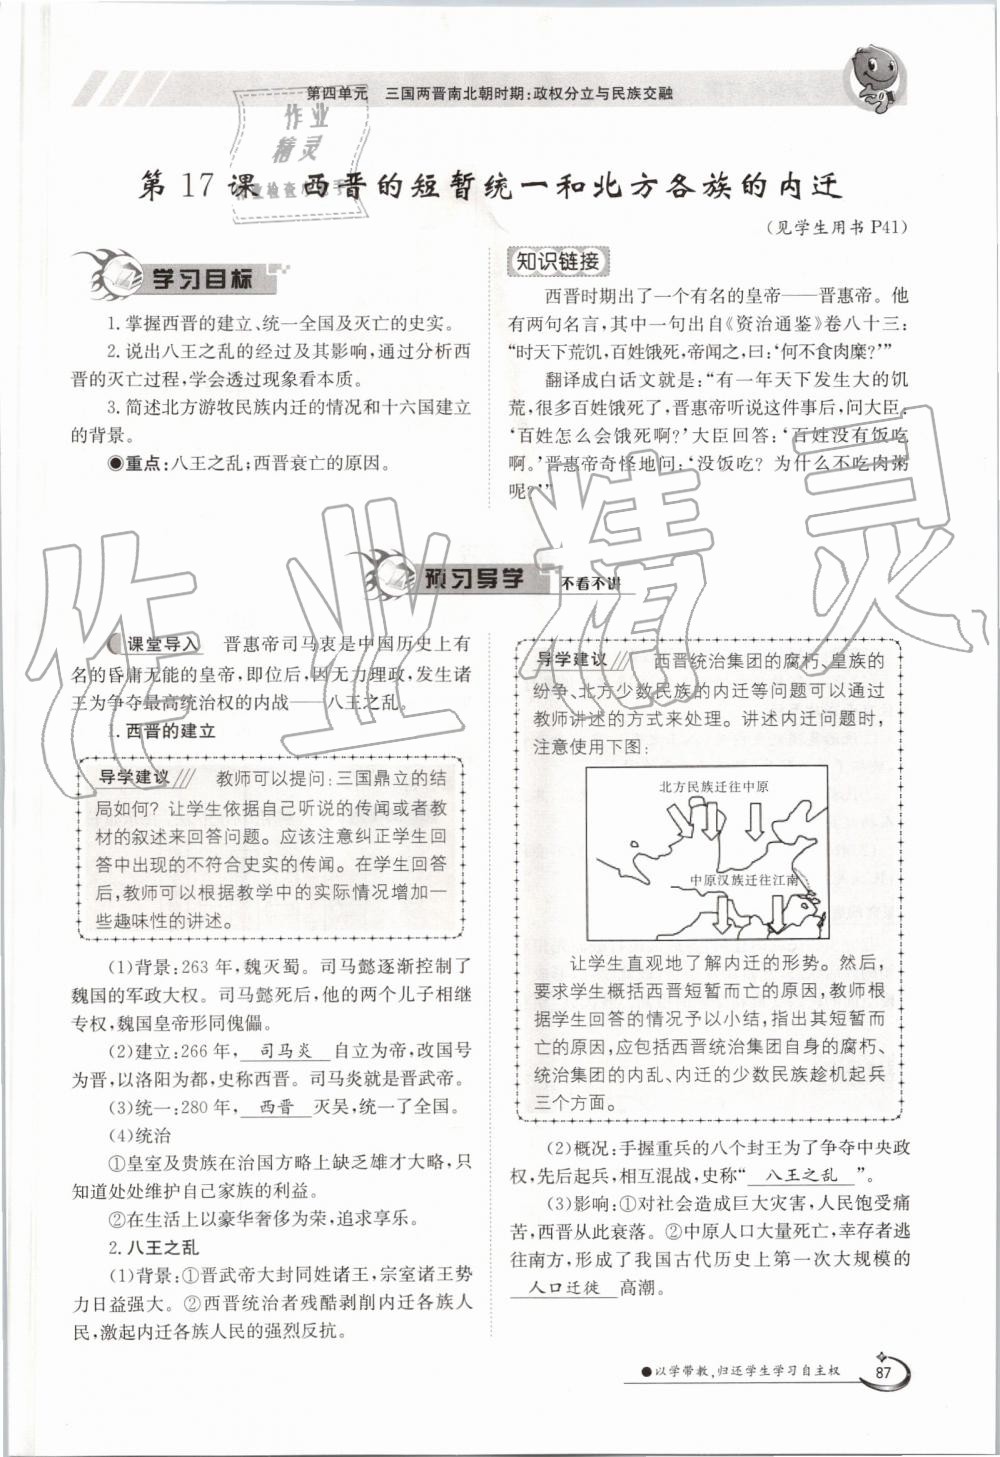 第四单元 三国两晋南北朝时期:政权分立与民族交融
作业
精灵
第17课 西晋的短暂统一和北方各族的内迁
(见学生用书P41)
学习目标
1.掌握西晋的建立、统一全国及灭亡的史实。
2.说出八王之乱的经过及其影响,通过分析西
晋的灭亡过程,学会透过现象看本质。
3.简述北方游牧民族内迁的情况和十六国建立
的背景。
●重点:八王之乱;西晋衰亡的原因。
知识链接
西晋时期出了一个有名的皇帝——晋惠帝。他
有两句名言,其中一句出自《资治通鉴》卷八十三:
“时天下荒饥,百姓饿死,帝闻之,曰:‘何不食肉糜?’”
翻译成白话文就是:“有一年天下发生大的饥
荒,很多百姓饿死了,晋惠帝听说这件事后,问大臣:
‘百姓怎么会饿死啊?’大臣回答:‘百姓没有饭吃
啊。’晋惠帝奇怪地问:‘没饭吃?为什么不吃肉粥
呢?’”
作业精灵
预习导学 不看不讲
课堂导入 晋惠帝司马衷是中国历史上有
名的昏庸无能的皇帝,即位后,因无力理政,发生诸
王为争夺最高统治权的内战——八王之乱。
1.西晋的建立
导学建议 教师可以提问:三国鼎立的结
局如何?让学生依据自己听说的传闻或者教
材的叙述来回答问题。应该注意纠正学生回
答中出现的不符合史实的传闻。在学生回答
后,教师可以根据教学中的实际情况增加一
些趣味性的讲述。
(1)背景:263年,魏灭蜀。司马懿逐渐控制了
魏国的军政大权。司马懿死后,他的两个儿子相继
专权,魏国皇帝形同傀儡。
(2)建立:266年, 司马炎 自立为帝,改国号
为晋,以洛阳为都,史称西晋。司马炎就是晋武帝。
(3)统一:280年, 西晋 灭吴,统一了全国。
(4)统治
①皇室及贵族在治国方略上缺乏雄才大略,只
知道处处维护自己家族的利益。
②在生活上以豪华奢侈为荣,追求享乐。
2.八王之乱
(1)背景:①晋武帝大封同姓诸王,宗室诸王势
力日益强大。②西晋统治者残酷剥削内迁各族人
民,激起内迁各族人民的强烈反抗。
导学建议 西晋统治集团的腐朽、皇族的
纷争、北方少数民族的内迁等问题可以通过
教师讲述的方式来处理。讲述内迁问题时,
注意使用下图:
北方民族迁往中原
中原汉族迁往江南
让学生直观地了解内迁的形势。然后,
要求学生概括西晋短暂而亡的原因,教师根
据学生回答的情况予以小结,指出其短暂而
亡的原因,应包括西晋统治集团自身的腐朽、
统治集团的内乱、内迁的少数民族趁机起兵
三个方面。
(2)概况:手握重兵的八个封王为了争夺中央政
权,先后起兵,相互混战,史称“ 八王之乱 ”。
(3)影响:①对社会造成巨大灾害,人民饱受痛
苦,西晋从此衰落。②中原人口大量死亡,幸存者逃
往南方,形成了我国古代历史上第一次大规模的
人口迁徙 高潮。
●以学带教,归还学生学习自主权 87